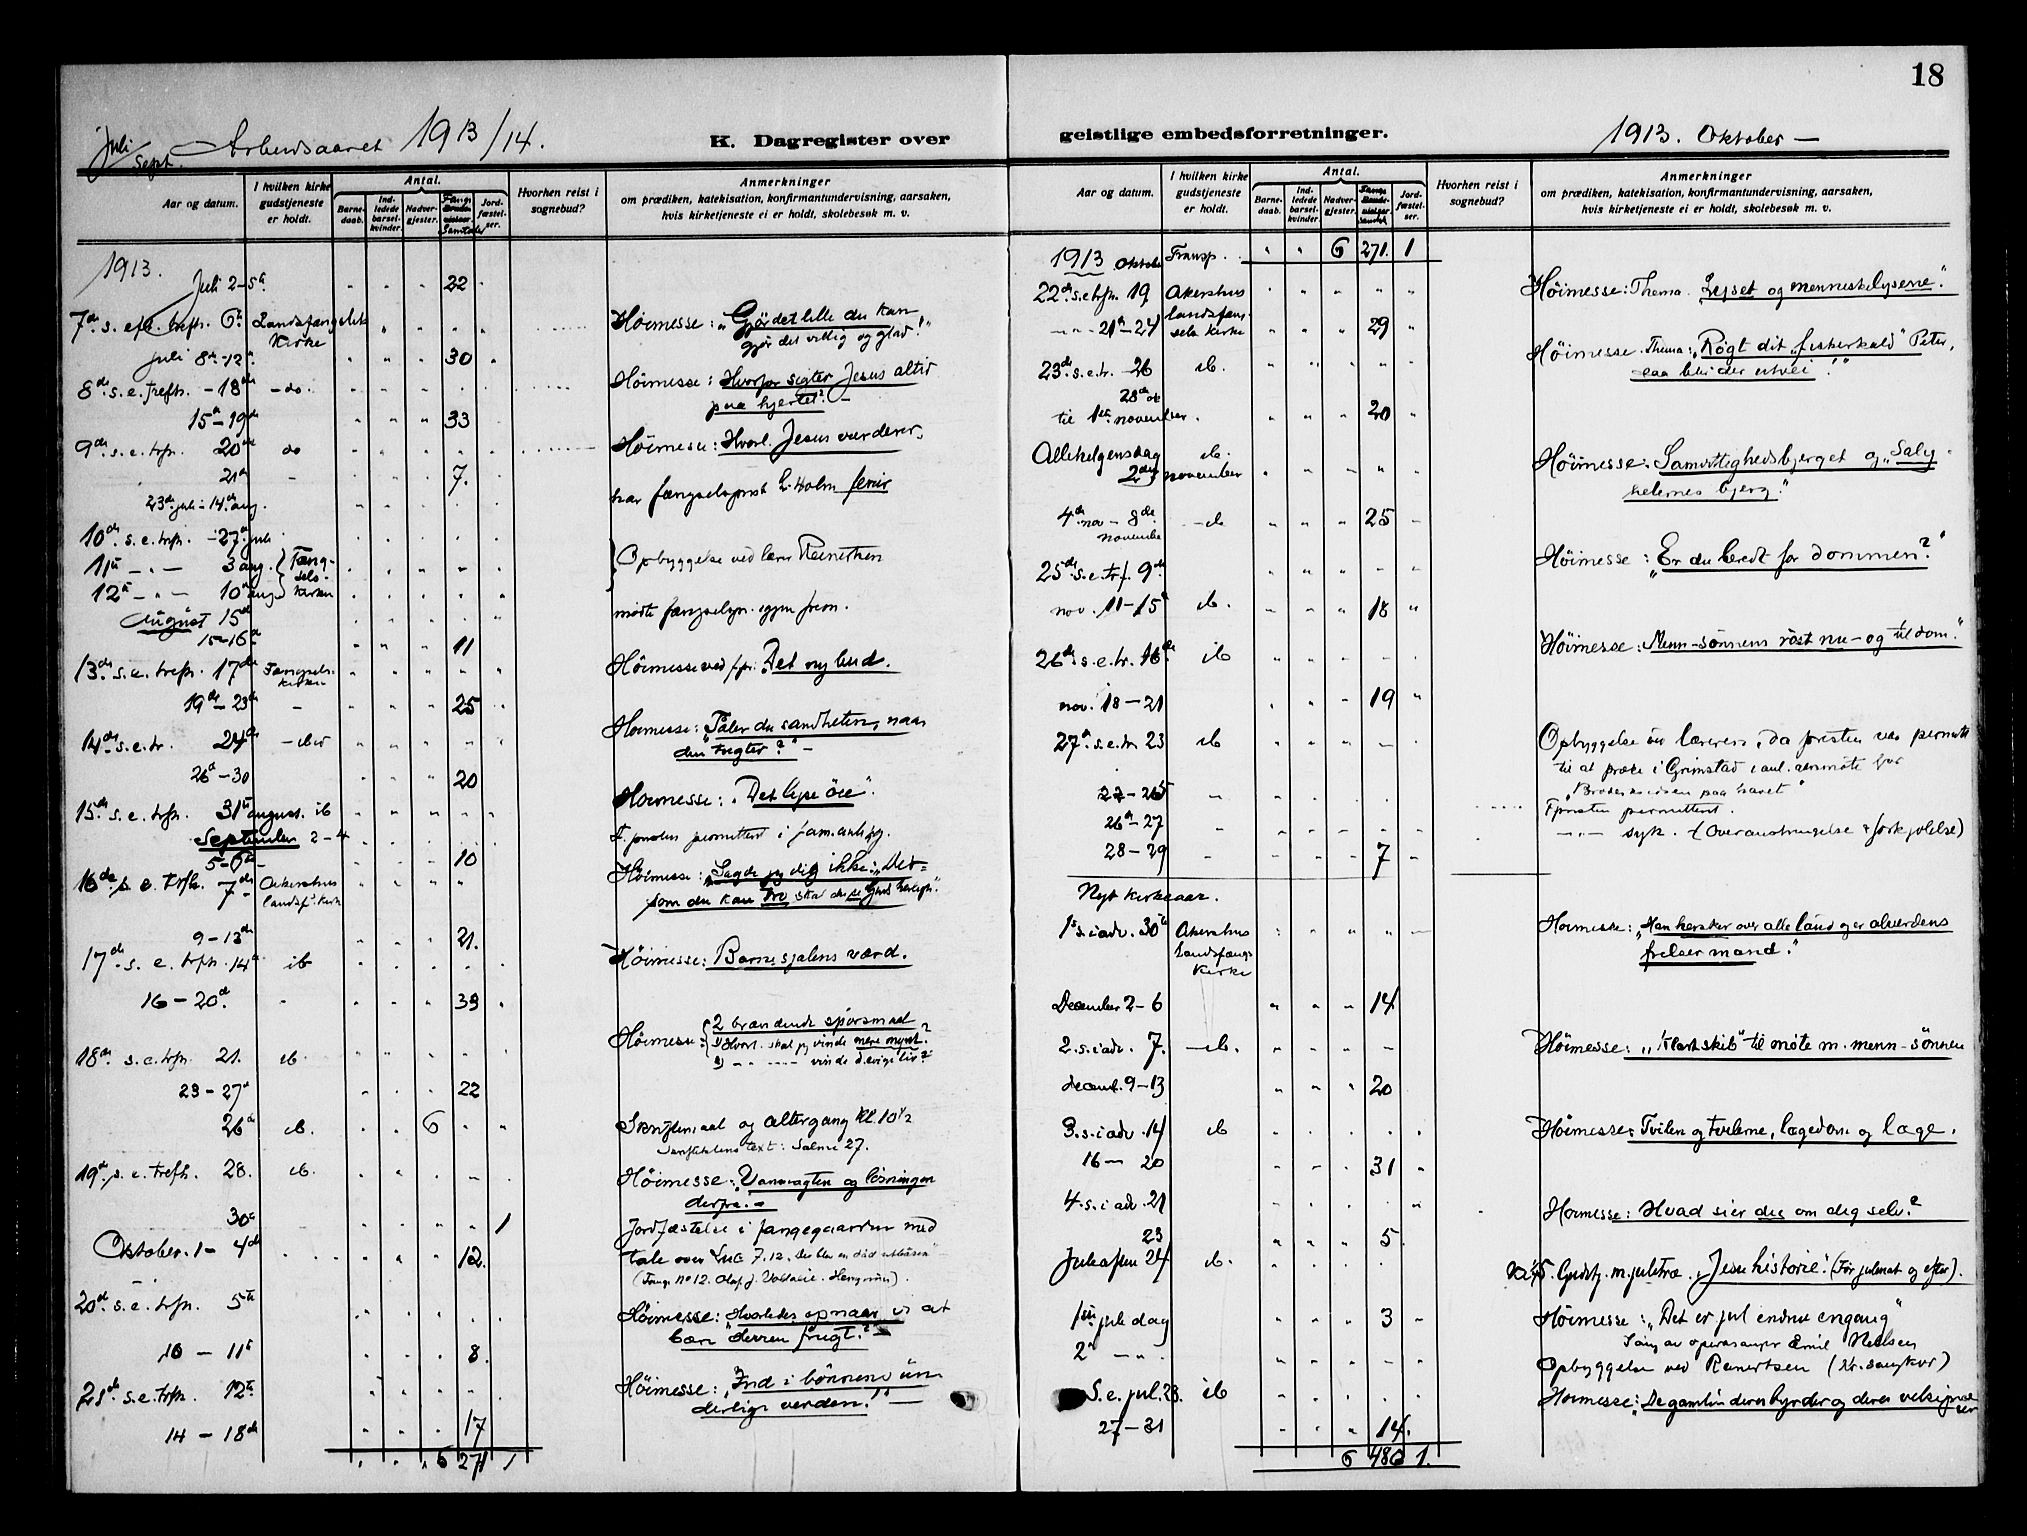 18
Juli
Sept.
Arbeidsaaret 1913/14.
K. Dagregister over
geistlige embedsforretninger.
1913. Oktober —
Aar og datum.
I hvilken kirke gudstjeneste er holdt.
Antal.
Barnedaab.
Indledede barselkvinder.
Nadvergjester.
Samtaler
Jordfæstelser.
Hvorhen reist i sognebud?
Anmerkninger
om prædiken, katekisation, konfirmantundervisning, aarsaken,
hvis kirketjeneste ei er holdt, skolebesøk m. v.
1913.
Juli 2-5te 22
7de s. eft. trefh. 6te Landsfængslets Kirke Höimesse: „Gjør det lille du kan
gjør det villig og glad!"
juli 8de-12te 30
8de s. e. trefh. -13de -do- Höimesse: Hvorfor sigter Jesus altid
paa hjertet? -
15de-19de 33
9de s. e. trfh. 20de do Höimesse: Hvorl. Jesus vurderer.
21de - 7.
23de juli-14de aug. har fængselsprest L. Holm ferie
10de s. e. trfh. -27de juli
11te -„- 3 aug. Fængselskirken Opbyggelse ved lærer Reinertsen
12te -„- 10de aug.
August 15de mødte fængselspr. igjen frem.
15-16de 11
13de s. e. trefh. 17de Fængselskirken Höimesse ved fpr. „Det ny bud.
19de-23de - 25
14de s. e. tr. 24de Höimesse: „Tåler du sandheten, naar
den rugter?" -
26de-30 20
15de s. e. trfh. 31te august. ib Höimesse: „Det lyse öie".
September 2-4 F. presten permittert i fam. anligg.
5-6te 10
16de s. e. trfh. 7de Akershus landsf. kirke Höimesse: „Sagde jeg dig ikke: „Dersom
du kan tro skal du se Guds herligh."
9-13de 21.
17de s. e. trfh. 14de ib Höimesse: Barnesjælens værd.
16-20de 33
18de s. e. trfh. 21. ib. Höimesse: 2 brændende spörsmaal
1) Hvorl. skal jeg vinde mere mynt?
2) -„- ---- vinde d. evige liv?
23-27de 22
26de ib. 6 Skriftemaal og altergang kl. 10½
Skriftetalens text: Salme 27.
19de s. e. trefh. 28. ib. Höimesse: „Vanvagten og løsningen
derfra. -
30te 1 Jordfæstelse i fangegaarden med
Oktober. 1-4de 12. tale over Luc 7.12. Der blev en död utbåren
20de s. e. trfh. 5te Höimesse: Hvorledes opnaar vi at
bære „Herren frugt?" -
10-11te 8.
21de s. e. trfh. 12te Höimesse: „Ind i bønnens underlige
verden!" -
14-18de 17
6 271 1
Aar og datum.
I hvilken kirke gudstjeneste er holdt.
Antal.
Barnedaab.
Indledede barselkvinder.
Nadvergjester.
Jordfæstelser.
Hvorhen reist i sognebud?
Anmerkninger
om prædiken, katekisation, konfirmantundervisning, aarsaken,
hvis kirketjeneste ei er holdt, skolebesøk m. v.
1913 Oktober Transp. 6 271. 1
22de s. e. tfh. 19 Akershus landsfængsels kirke Höimesse: Thema. Lyset og menneskelysene."
-„- 21de-24 29
23de s. e. tr. 26 ib. Höimesse. Thema: „Røgt dit „fiskerkald" Peter,
28de ok
til 1ste november. 20
Allehelgensdag ib. Höimesse: Samvittighedsbjerget og „Saligheternes
bjerg."
2den november
4de nov - 8de november -ib 25
25de s. e. trf. 9de Höimesse: „Er du beredt for dommen?"
nov. 11-15de ib. 18
26de s. e. tr. 16de ib Höimesse: Menn-sønnens røst nu - og til dom."
nov. 18-21 19
27de s. e. tr. 23 ib Opbyggelse ved læreren, da presten var permitt.
til at præke i Grimstad i anl. årsmøte for
„Broderkredsen paa havet"
22-25 Fpresten permittert.
26de-27 -„- syk. (Overanstrengelse & forkjølelse)
28-29 7
Nyt kirkeaar.
1s s. i adv. 30te Akershus Landsfængs Kirke Höimesse: „Han hersker over alle land og er alverdens
frelsermand."
December 2-6 14
2. s. i adv. 7. -ib. Höimesse: „Klart skib" til møte m. menn-sønnen
decemb. 9-13 20
3. s. i adv. 14 ib Höimesse: Tvilen og tvilerne, lægedom og læge.
16-20 31
4. s. i adv. 21 Höimesse: Hvad sier du om dig selv?
23 5
Juleaften 24 ib. Kl. 5. Gudstj. m. juletræ. „Jesu historie". (Før julemat og efter).
1ste juledag 3 Höimesse: „Det er jul endnu engang"
Sang av operasanger Emil Nielsen
2de -„- Opbyggelse ved Reinertsen (kr. sangkor)
S. e. jul. 28. ib Höimesse: „De gamle deres byrder og deres velsignelser
27-31 14.
6 486 1.